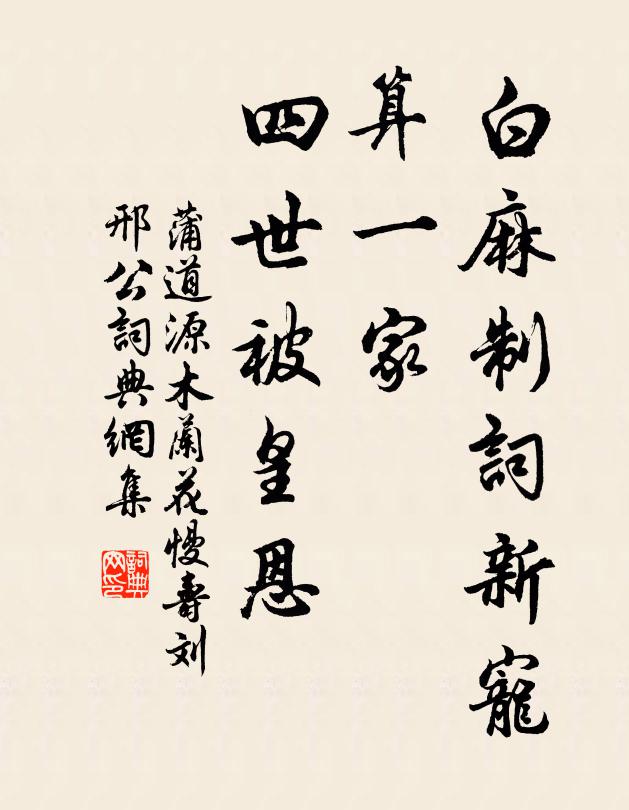 白麻制詞新寵
算一家
四世被皇恩
蒲道源木蘭花慢壽刘
邢公詞典網集
詞典网印